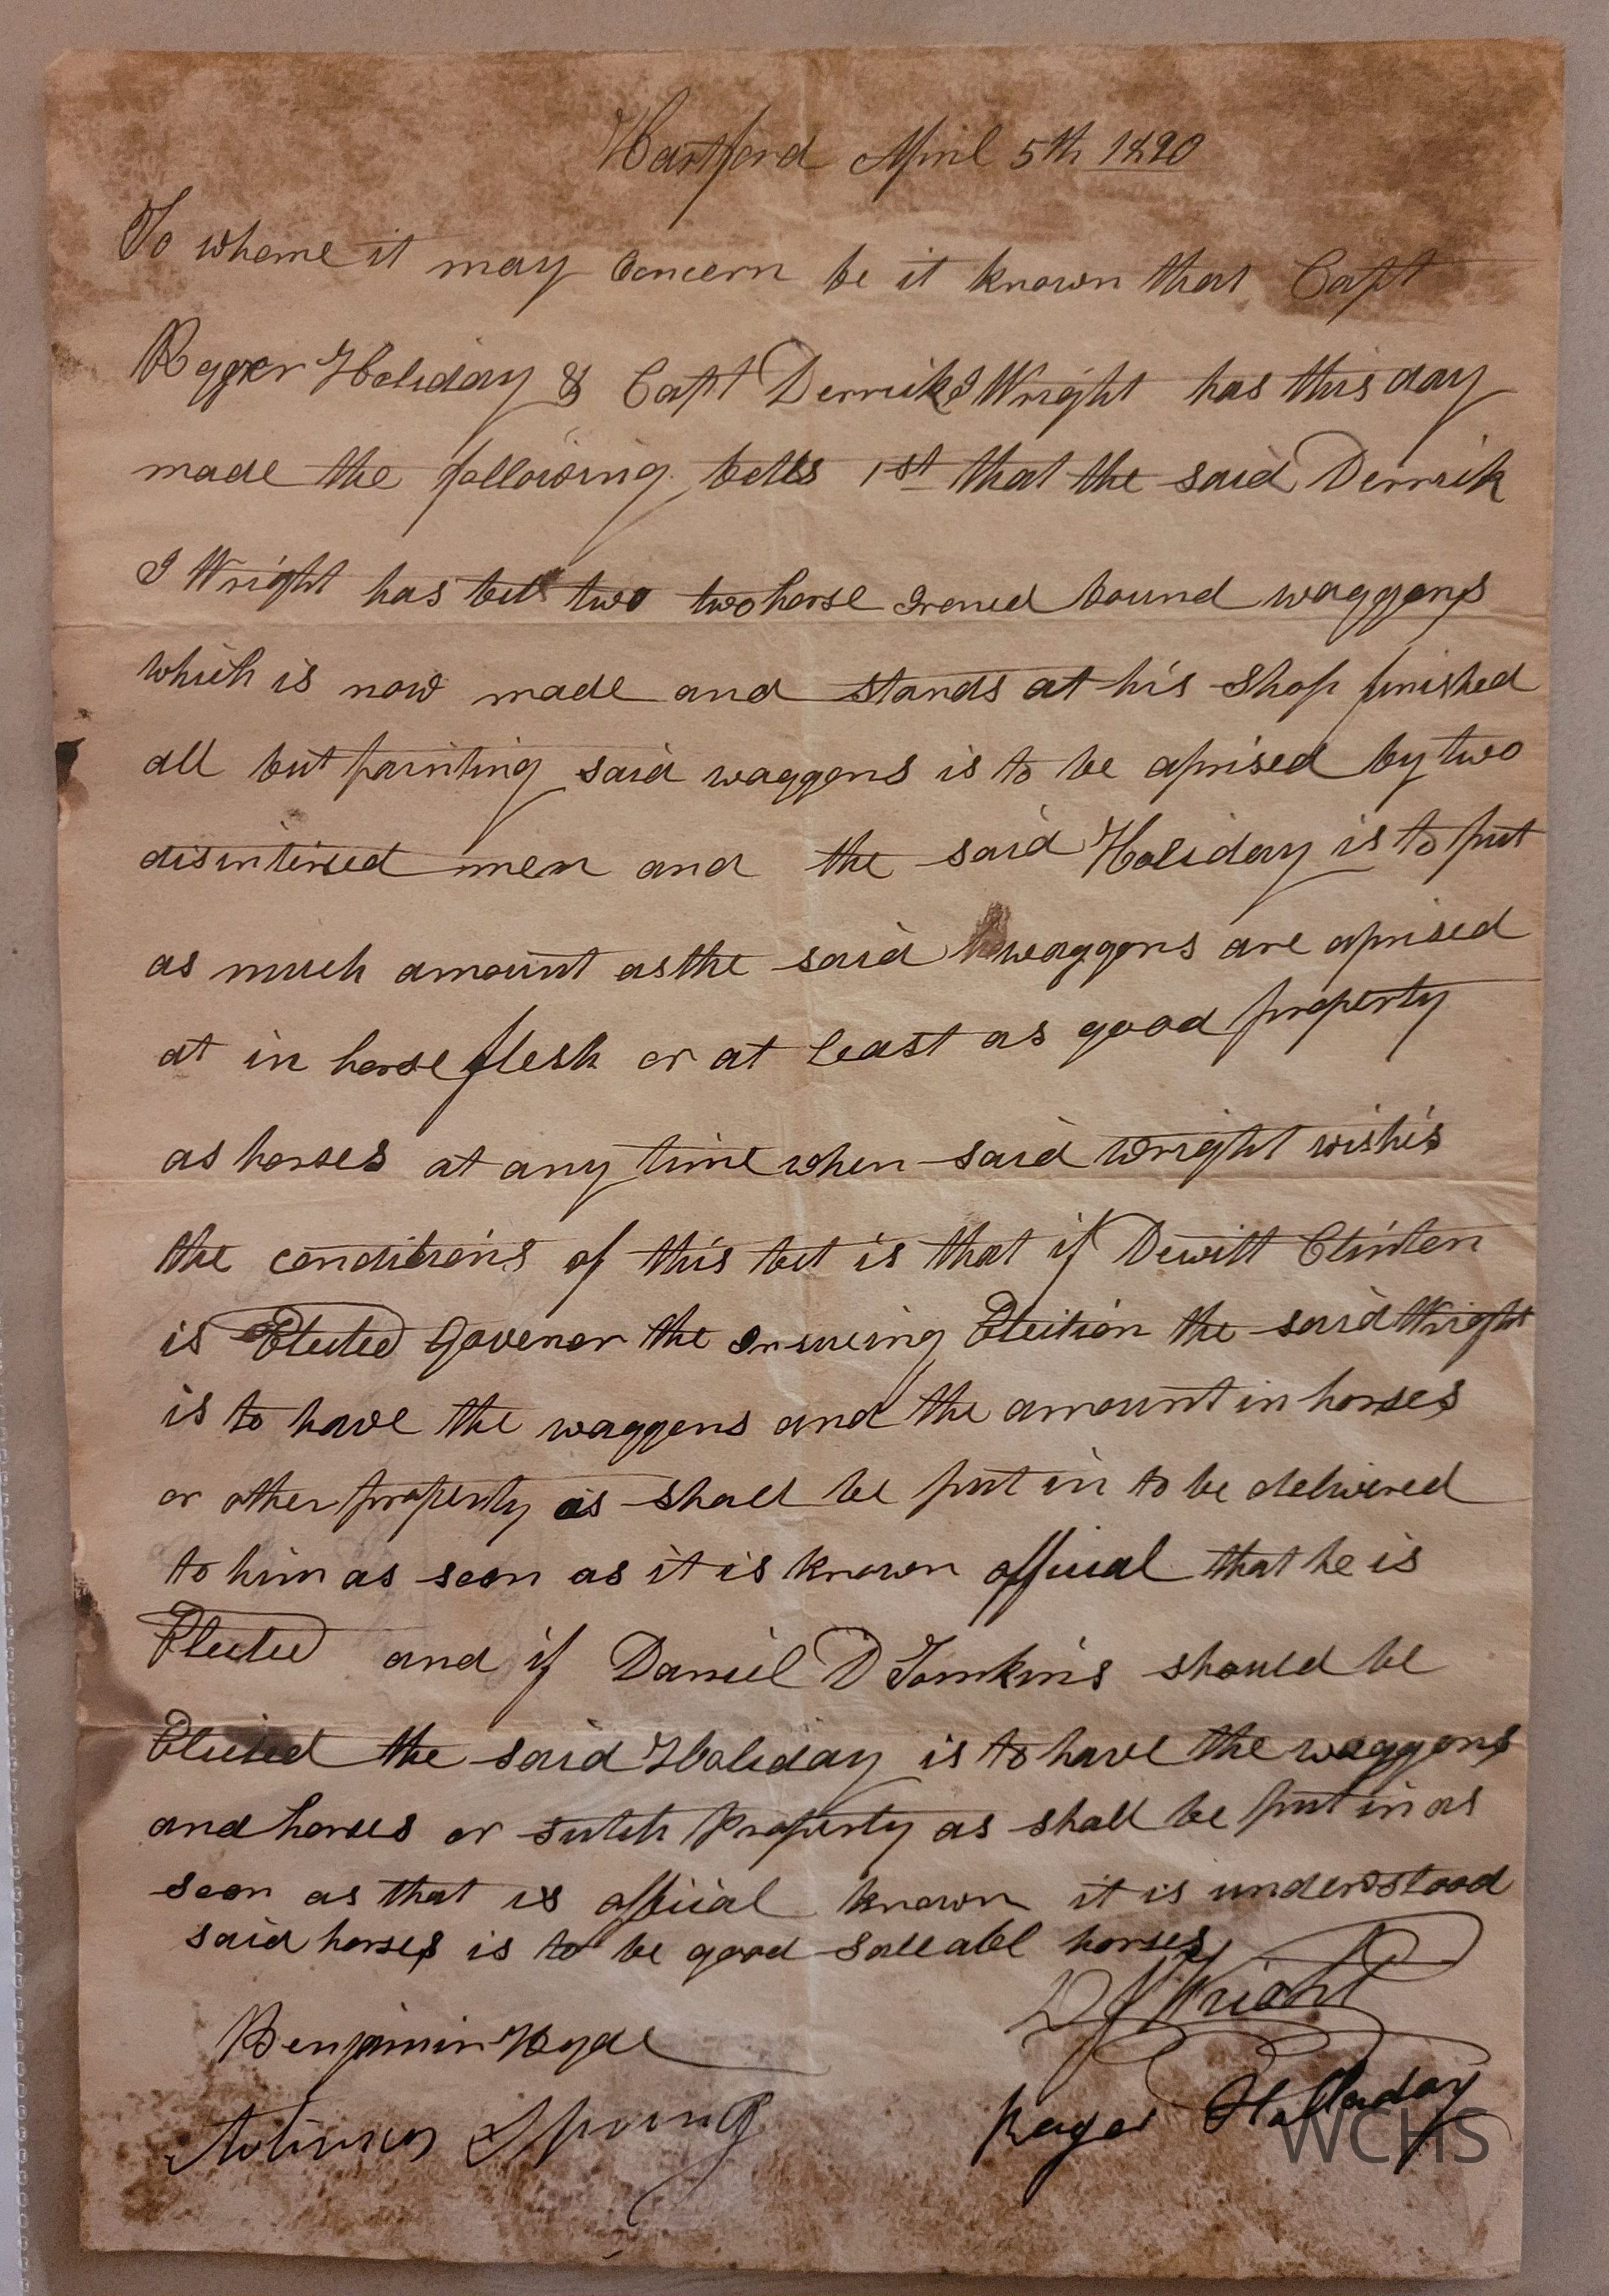 Hartford April 5th 1820
To whome it may Concern be it known that Capt
Roger Holiday & Capt Derrick I Wright has this day
made the following betts 1st that the said Derrick
I Wright has bet two two horse Ironed bound waggons
which is now made and stands at his shop finished
all but painting said waggons is to be aprised by two
disintirsed men and the said Holiday is to put
as much amount as the said waggons are aprised
at in horse flesh or at least as good property
as horses at any time when said Wright wishis
the conditions of this bet is that if Dewitt Clinton
is Elected Govenor the Ensueing Election the said Wright
is to have the waggons and the amount in horses
or other property as shall be put in to be delivered
to him as soon as it is known official that he is
Elected and if Daniel D Tomkins should be
Elected the said Holiday is to have the waggons
and horses or sutch Property as shall be put in as
soon as that is official known it is understood
said horses is to be good salleabl horses
D I Wright
Benjamin Hyde
Roger Halladay
Spring
WCHS